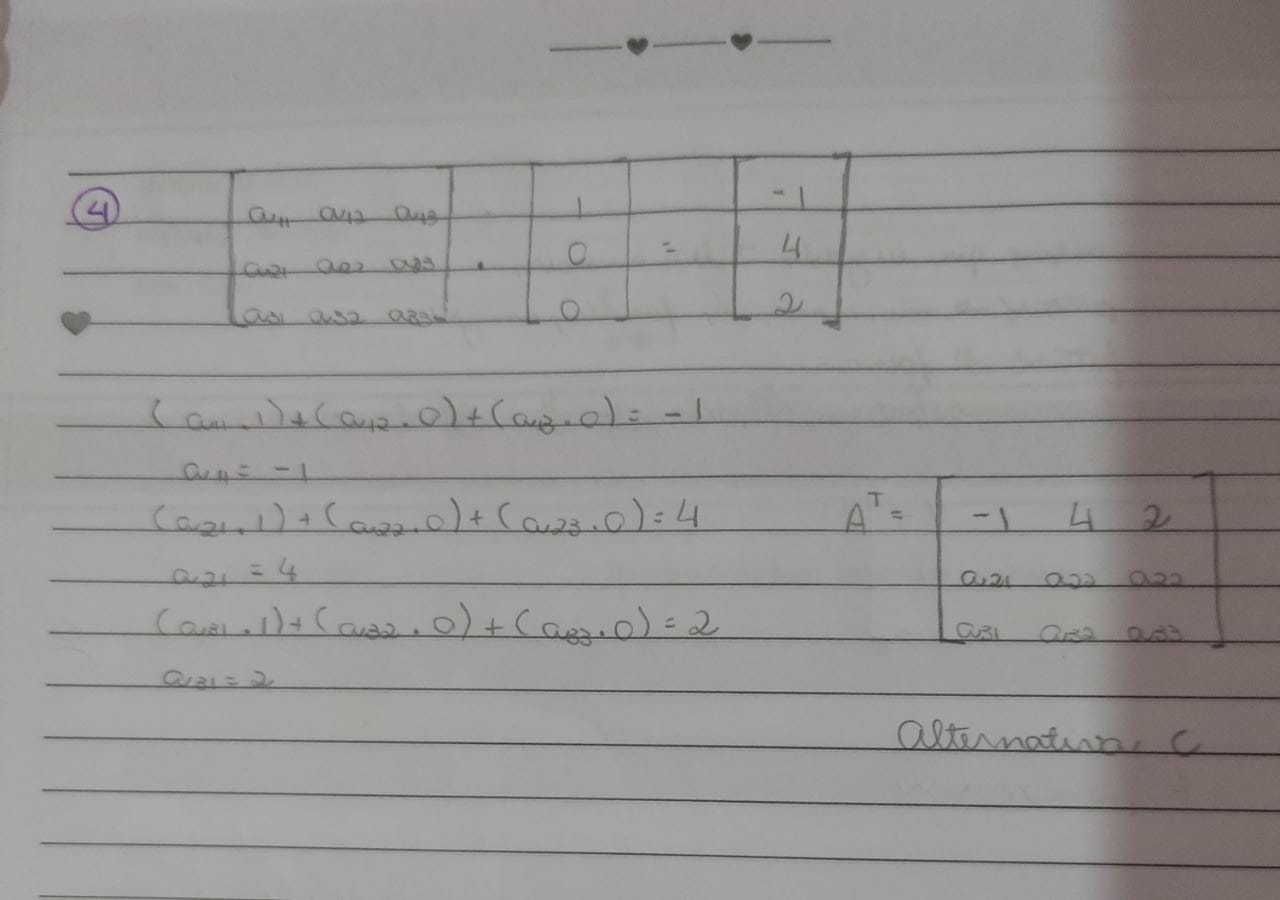 ④ a11 a12 a13 1 -1
a21 a22 a23 . 0 = 4
a31 a32 a33 0 2
(a11 . 1) + (a12 . 0) + (a13 . 0) = -1
a11 = -1
(a21 . 1) + (a22 . 0) + (a23 . 0) = 4
a21 = 4
(a31 . 1) + (a32 . 0) + (a33 . 0) = 2
a31 = 2
A^T = -1 4 2
a21 a22 a22
a31 a32 a33
Alternativa C